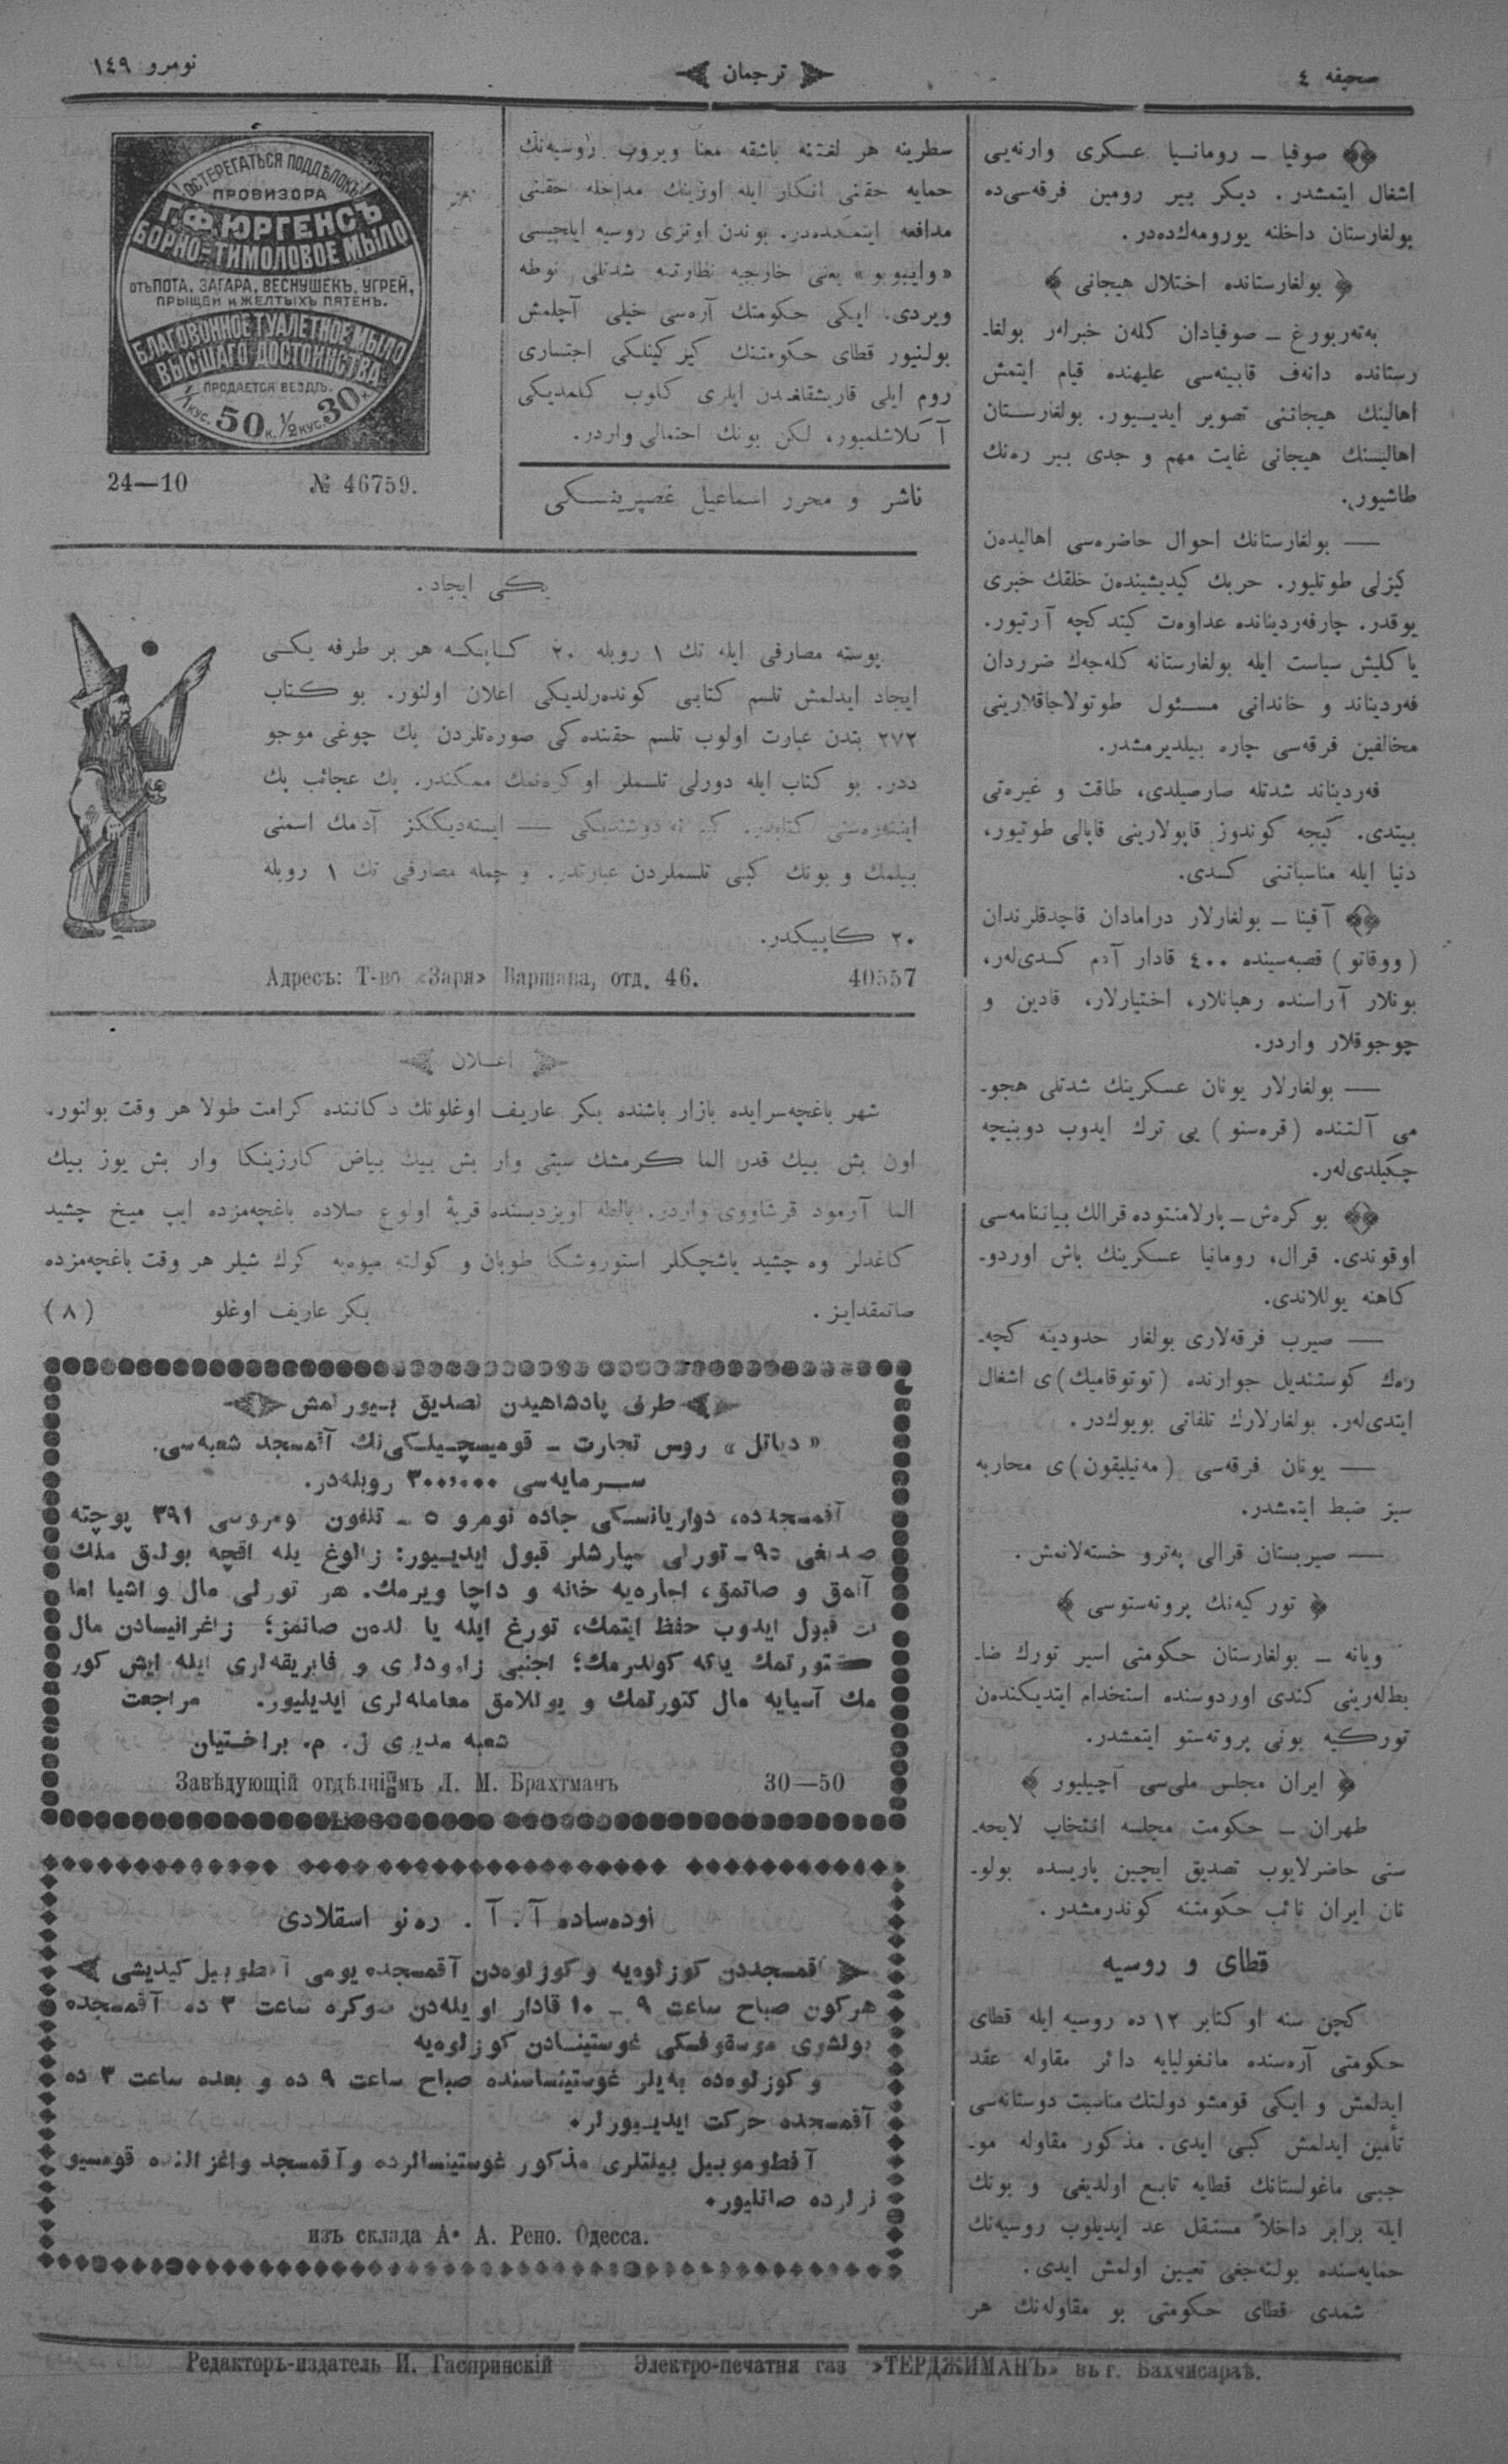 صحیفه ٤
ترجمان
نومرو ١٤٩
صوفیا ـ رومانیا عسكری وارنه‌یی
اشغال ایتمشدر. دیكر بیر رومین فرقه‌سی‌ده
بولغارستان داخلنه یورومه‌ك‌ده‌در.
﴿ بولغارستانده اختلال هیجانی ﴾
په‌ته‌ربورغ ـ صوفیادان كله‌ن خبرلەر بولغا-
رستانده دانه‌ف قابینه‌سی علیهنده قیام ایتمش
اهالینك هیجاننی تصویر ایدییور. بولغارستان
اهالیسنك هیجانی غایت مهم و جدی بیر ره‌نك
طاشیور.
— بولغارستانك احوال حاضره‌سی اهالیدەن
كیزلی طوتلیور. حربك كیدیشیندەن خلقك خبری
یوقدر. چارفه‌ردیناندە عداوت كیتدكچه آرتیور.
یاكلیش سیاست ایله بولغارستانه كله‌جه‌ك ضرردان
فه‌ردیناند و خاندانی مسئول طوتولاجاقلارینی
مخالفین فرقه‌سی چاره بیلدیرمشدر.
فه‌ردیناند شدتله صارصیلدی، طاقت و غیره‌تی
بیتدی. كیجه كوندوز قاپولارینی قاپالی طوتیور،
دنیا ایله مناسباتنی كسدی.
آفینا ـ بولغارلار درامادان قاچدقلرندان
(ووقاتو) قصبه‌سینده ٤٠٠ قادار آدم كسدی‌لەر،
بونلار آراسنده رهبانلار، اختیارلار، قادین و
چوجوقلار واردر.
— بولغارلار یونان عسكرینك شدتلی هجو-
می آلتنده (قره‌سنو) یی ترك ایدوب دوبنیچه
چكیلدی‌لەر.
بوكره‌ش ـ پارلامنتوده قرالك بیاننامه‌سی
اوقوندی. قرال، رومانیا عسكرینك باش اوردو-
كاهنه یوللاندی.
— صیرب فرقه‌لاری بولغار حدودینه كچه-
رەك كوستندیل جوارنده (توتوقامیك)ی اشغال
ایتدی‌لەر. بولغارلارك تلفاتی بویوك‌در.
— یونان فرقه‌سی (مه‌نیلیقون)ی محاربه
سیز ضبط ایتمشدر.
— صیربستان قرالی په‌ترو خسته‌لانمش.
﴿ توركیه‌نك پروته‌ستوسی ﴾
ویانه ـ بولغارستان حكومتی اسیر تورك ضا-
بطلەرینی كندی اوردوسنده استخدام ایتدیكندەن
توركیه بونی پروته‌ستو ایتمشدر.
﴿ ایران مجلس ملی‌سی آچیلیور ﴾
طهران ـ حكومت مجلسه انتخاب لایحه-
سنی حاضرلایوب تصدیق ایچین پاریسده بولو-
نان ایران نائب حكومتنه كوندرمشدر.
قطای و روسیه
كچن سنه اوكتابر ١٢ ده روسیه ایله قطای
حكومتی آره‌سنده مانغولیایه دائر مقاوله عقد
ایدلمش و ایكی قومشو دولتك مناسبت دوستانه‌سی
تأمین ایدلمش كبی ایدی. مذكور مقاوله مو-
جبی ماغولستانك قطایه تابع اولدیغی و بونك
ایله برابر داخلاً مستقل عد ایدیلوب روسیه‌نك
حمایه‌سنده بولنه‌جغی تعیین اولمش ایدی.
شمدی قطای حكومتی بو مقاوله‌نك هر
سطرینه هر لفتنه باشقه معنا ویروب روسیه‌نك
حمایه حقنی انكار ایله اوزینك مداخله حقنی
مدافعه ایتمكده‌در. بوندن اوتری روسیه ایلچیسی
«وایبوبو» یعنی خارجیه نظارتنه شدتلی نوطه
ویردی. ایكی حكومتك آره‌سی خیلی آچلمش
بولنیور قطای حكومتنك كیركینلكی اجتساری
روم ایلی قاریشقلغندن ایلری كلوب كلمدیكی
آكلاشلمیور، لكن بونك احتمالی واردر.
ناشر و محرر اسماعیل غصپرینسكی
ОСТЕРЕГАТЬСЯ ПОДДѢЛОКЪ!
ПРОВИЗОРА
Г.Ф.ЮРГЕНСЪ
БОРНО-ТИМОЛОВОЕ МЫЛО
отъ ПОТА, ЗАГАРА, ВЕСНУШЕКЪ, УГРЕЙ,
ПРЫЩЕЙ и ЖЕЛТЫХЪ ПЯТЕНЪ.
БЛАГОВОННОЕ ТУАЛЕТНОЕ МЫЛО
ВЫСШАГО ДОСТОИНСТВА
ПРОДАЕТСЯ ВЕЗДѢ.
1/1 КУС. 50 К. 1/2 КУС. 30 К.
24—10 № 46759.
یكی ایجاد.
پوسته مصارفی ایله تك ١ روبله ٢٠ كاپیكه هر بر طرفه یكی
ایجاد ایدلمش تلسم كتابی كونده‌رلدیكی اعلان اولنور. بو كتاب
٢٧٢ بتدن عبارت اولوب تلسم حقنده‌كی صوره‌تلردن پك چوغی موجو
ددر. بو كتاب ایله دورلی تلسملر اوكره‌نمك ممكندر. پك عجائب پك
كتابدر. دوشندیكی — ایسته‌دیككز آدمك اسمنی
بیلمك و بونك كبی تلسملردن عبارتدر. و جمله مصارفی تك ١ روبله
٢٠ كاپیكدر.
Адресъ: Т-во «Заря» Варшава, отд. 46. 40557
اعلان
شهر باغچه‌سرایده بازار باشنده بكر عاریف اوغلونك دكاننده كرامت طولا هر وقت بولنور.
اون بش بیك قدر الما كرمشك سبتی وار بش بیك بیاض كارزینكا وار بش یوز بیك
الما آرمود قرشاووی واردر. یالطه اویزدیسنده قریهٔ اولوغ صلاده باغچه‌مزده ایپ میخ چشید
كاغدلر وه چشید یاشچكلر استوروشكا طوبان و كولته میوه‌یه كرك شیلر هر وقت باغچه‌مزده
صاتمقدایز. بكر عاریف اوغلو (٨)
طرف پادشاهیدن تصدیق بیورلمش
«دیاتل» روس تجارت ـ قومیسچیلكی‌نك آقمسجد شعبه‌سی.
سرمایه‌سی ٣٠٠،٠٠٠ روبله‌در.
آقمسجدده، دواریانسكی جاده نومرو ٥ ـ تلفون نومروسی ٣٩١ پوچته
٩٥ـ تورلی سپارشلر قبول ایدییور: زالوغ یله اقچه بولدق ملك
آلمق و صاتمق، اجاره‌یه خانه و داچا ویرمك. هر تورلی مال و اشیا اما
نت قبول ایدوب حفظ ایتمك، تورغ ایله یا الدەن صاتمق؛ زاغرانیسادن مال
كتورتمك یاكه كوندرمك؛ اجنبی زاوودلری و فابریقه‌لری ایله ایش كور
مك آسیایه مال كتورتمك و یوللامق معامله‌لری ایدیلیور. مراجعت
شعبه مدیری ل. م. براختیان
Завѣдующій отдѣленіемъ Л. М. Брахтманъ 30—50
اوده‌ساده آ. آ. ره‌نو اسقلادی
آقمسجددن كوزلوه‌یه و كوزلوه‌دن آقمسجده یومی آفطوبیل كیدیشی
هركون صباح ساعت ٩ ـ ١٠ قادار اویله‌دن صوكره ساعت ٣ ده آقمسجده
بولشوی موسقوفسكی غوستینسادن كوزلوه‌یه
و كوزلوه‌ده به‌یلر غوستینساسنده صباح ساعت ٩ ده و بعده ساعت ٣ ده
آقمسجده حركت ایدییورلر.
آفطوموبیل بیلتلری مذكور غوستینسالرده و آقمسجد واغزالنده قومسیو
نرلرده صاتلیور.
изъ склада А. А. Рено. Одесса.
Редакторъ-издатель И. Гаспринскій Электро-печатня газ «ТЕРДЖИМАНЪ» въ г. Бахчисараѣ.